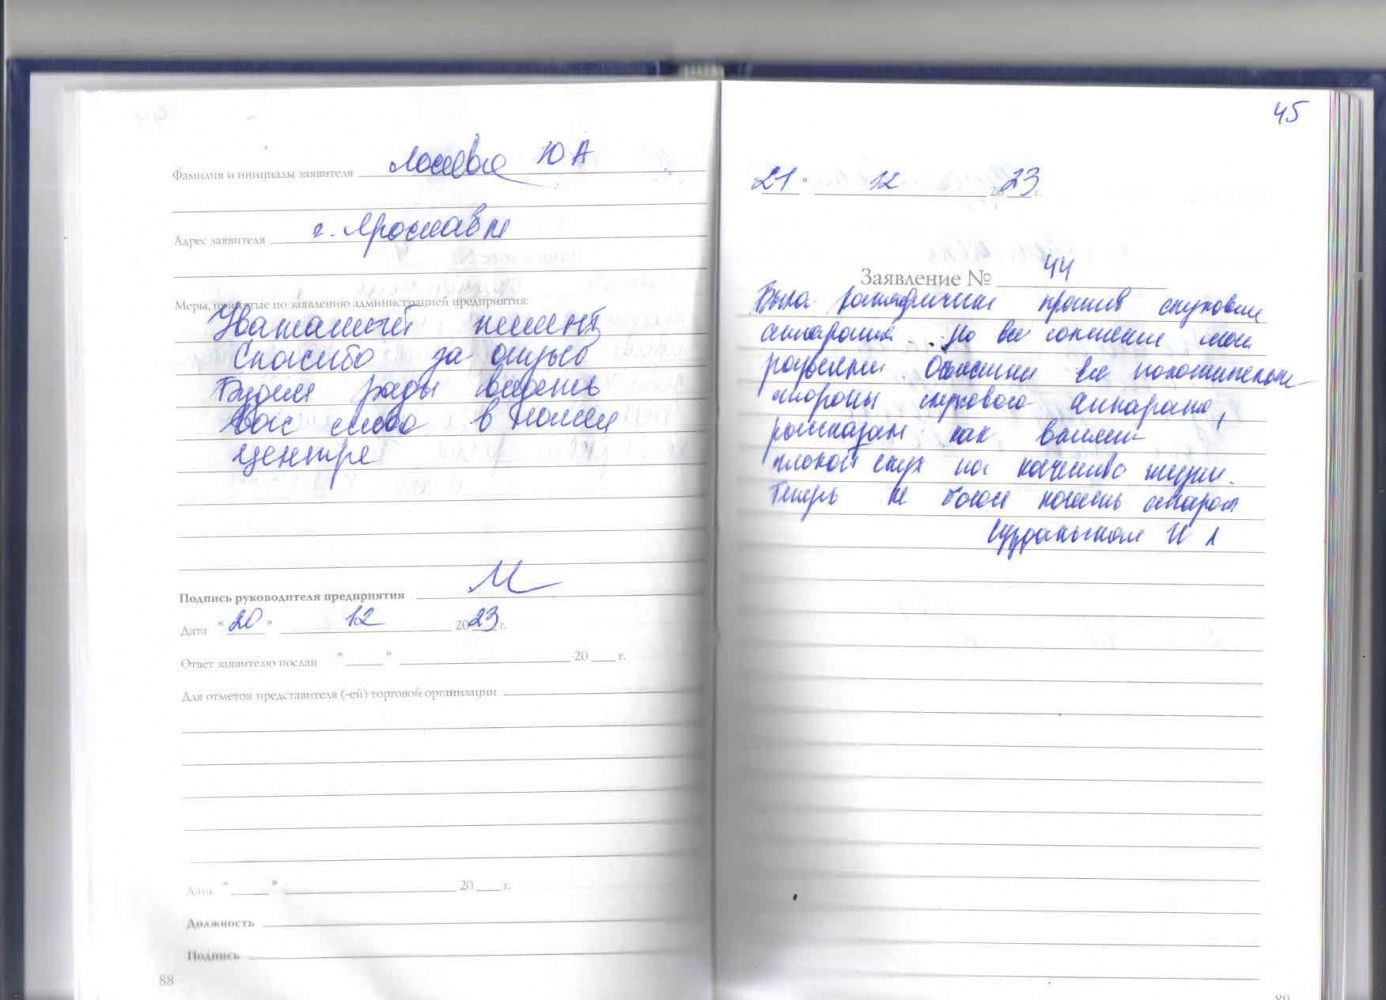 Фамилия и инициалы заявителя Лосева Ю А
Адрес заявителя г. Ярославль
Меры, принятые по заявлению администрацией предприятия:
Уважаемый клиент
Спасибо за отзыв
Будем рады видеть
Вас снова в нашем
центре
Подпись руководителя предприятия
Дата "20" 12 2023 г.
Ответ заявителю послан " " 20 г.
Для отметок представителя (-ей) торговой организации
Дата " " 20 г.
Должность
Подпись
88
45
21 " 12 2023 г.
Заявление № 44
Была категорически против слуховых
аппаратов.. Но все сомнения мои
развеяли. Объяснили все положительные
стороны слухового аппарата,
рассказали как влияет
плохой слух на качество жизни.
Теперь не боюсь носить аппарат
И Л
89